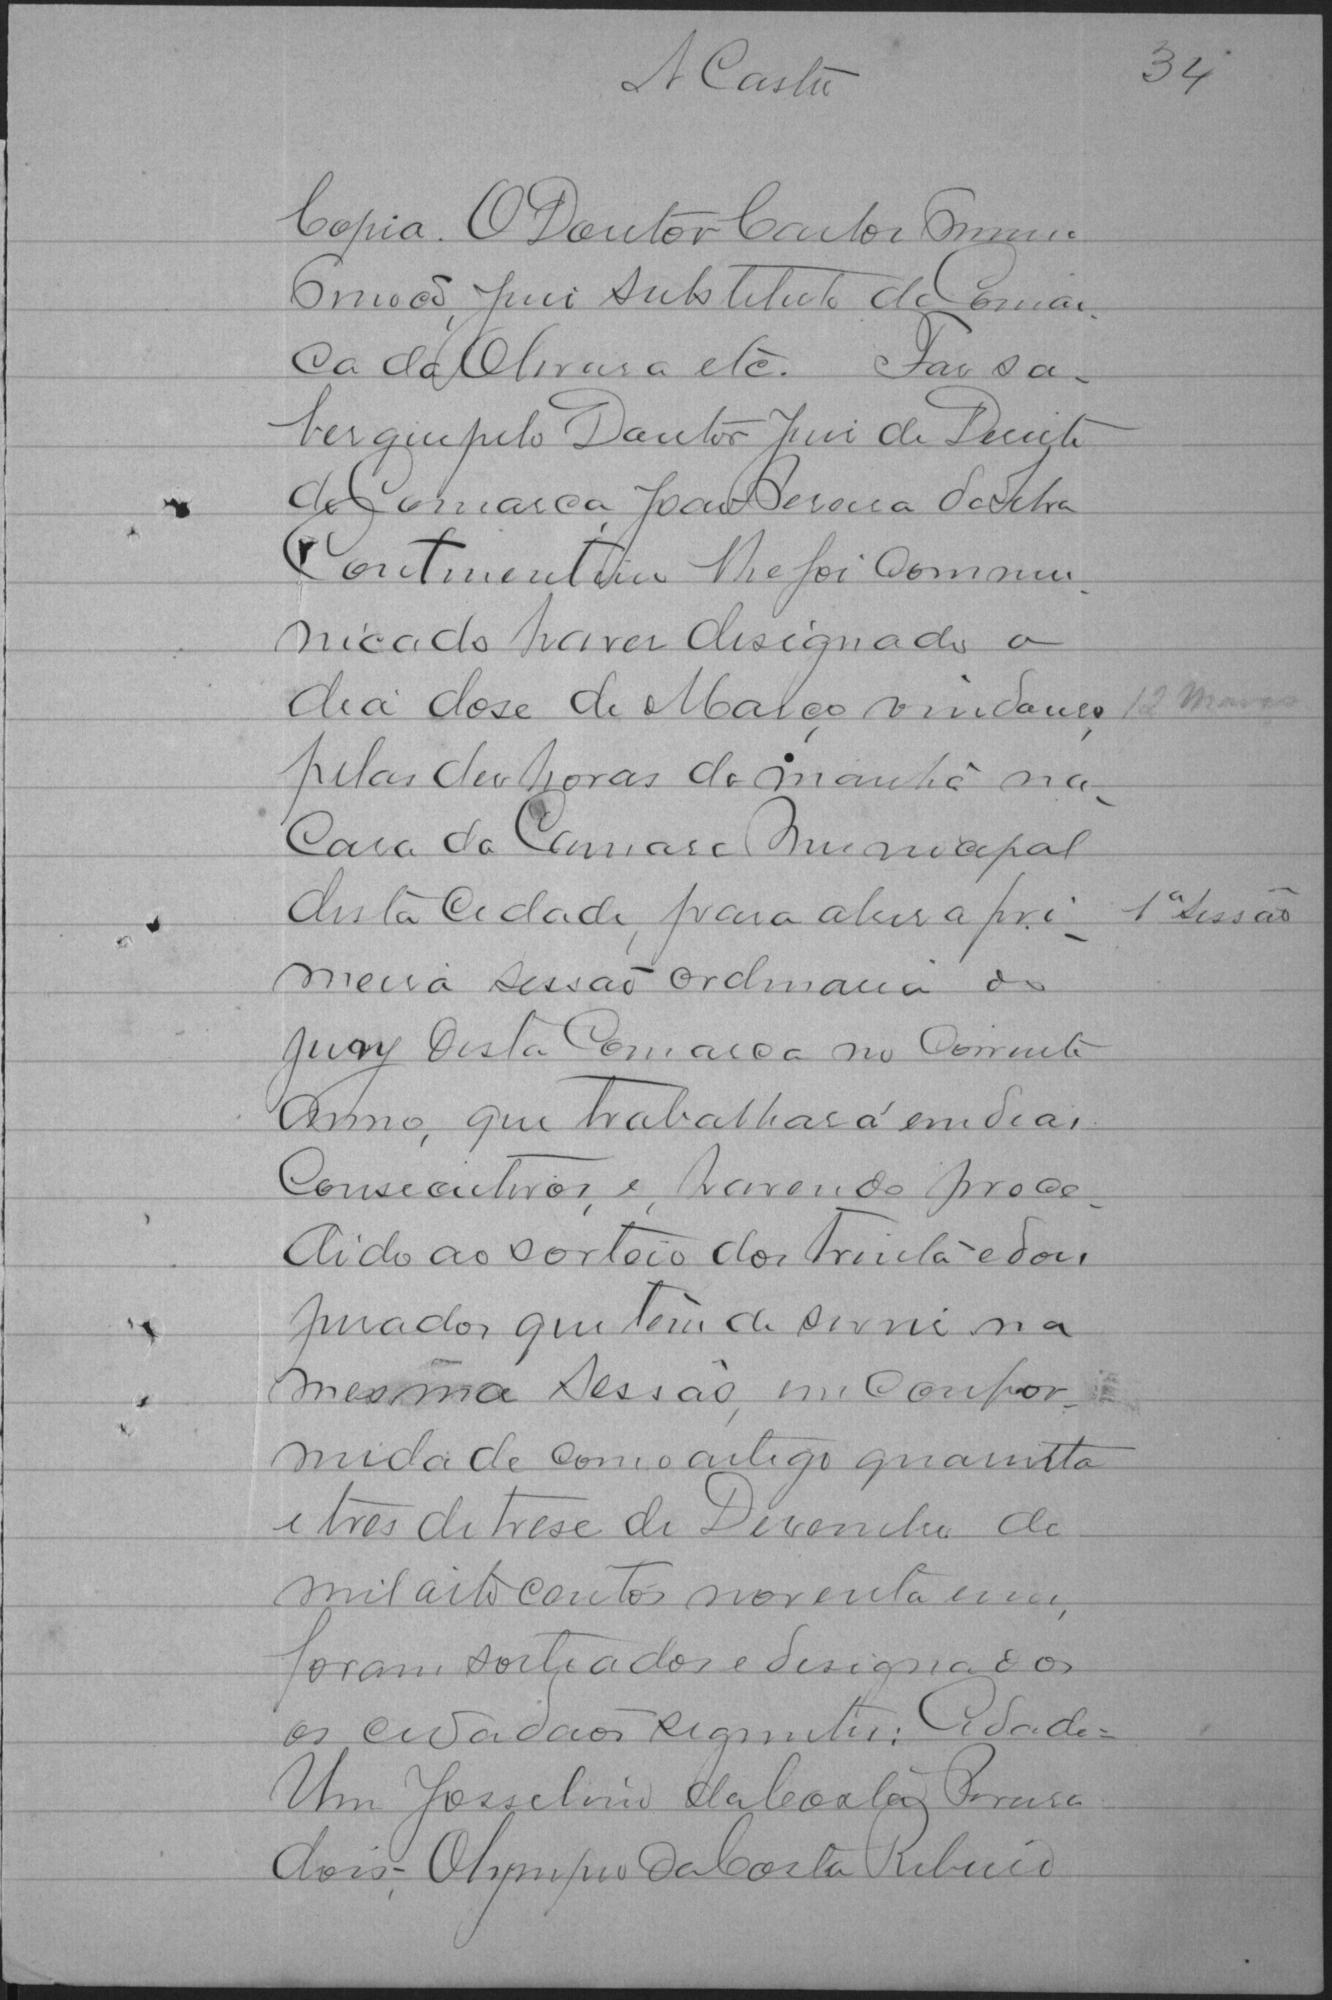 A Castro
34
Copia. O Doutor Carlos
juiz substituto da Comar-
ca da Oliveira etc. Faz sa-
ber que pelo Doutor Juiz de Direito
da Comarca, João Pereira da Silva
Continentino lhe foi commu-
nicado haver designado o
dia dose de Março vindouro, 12 Março
pelas dez horas da manhã na
Casa da Camara Municipal
desta Cidade, para abrir a pri- 1ª sessão
meira sessão ordinaria do
jury desta Comarca no corrente
anno, que trabalhará em dias
consecutivos, e, havendo proce-
dido ao sorteio dos trinta e dous
jurados que têm de servir na
mesma sessão, em confor-
midade com o artigo quarenta
e tres de trese de Dezembro de
mil oito centos noventa e um,
foram sorteados e designados
os cidadãos seguintes: Cidade=
Um Josselino da Costa Pereira
dois, Olympio da Costa Ribeiro